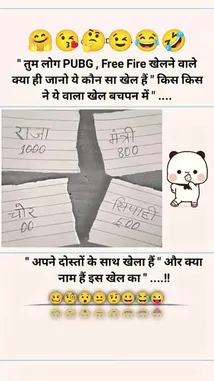 " तुम लोग PUBG , Free Fire खेलने वाले
क्या ही जानो ये कौन सा खेल हैं " किस किस
ने ये वाला खेल बचपन में " ....
राजा
1000
मंत्री
800
चोर
00
सिपाही
500
" अपने दोस्तों के साथ खेला हैं " और क्या
नाम हैं इस खेल का " ....!!